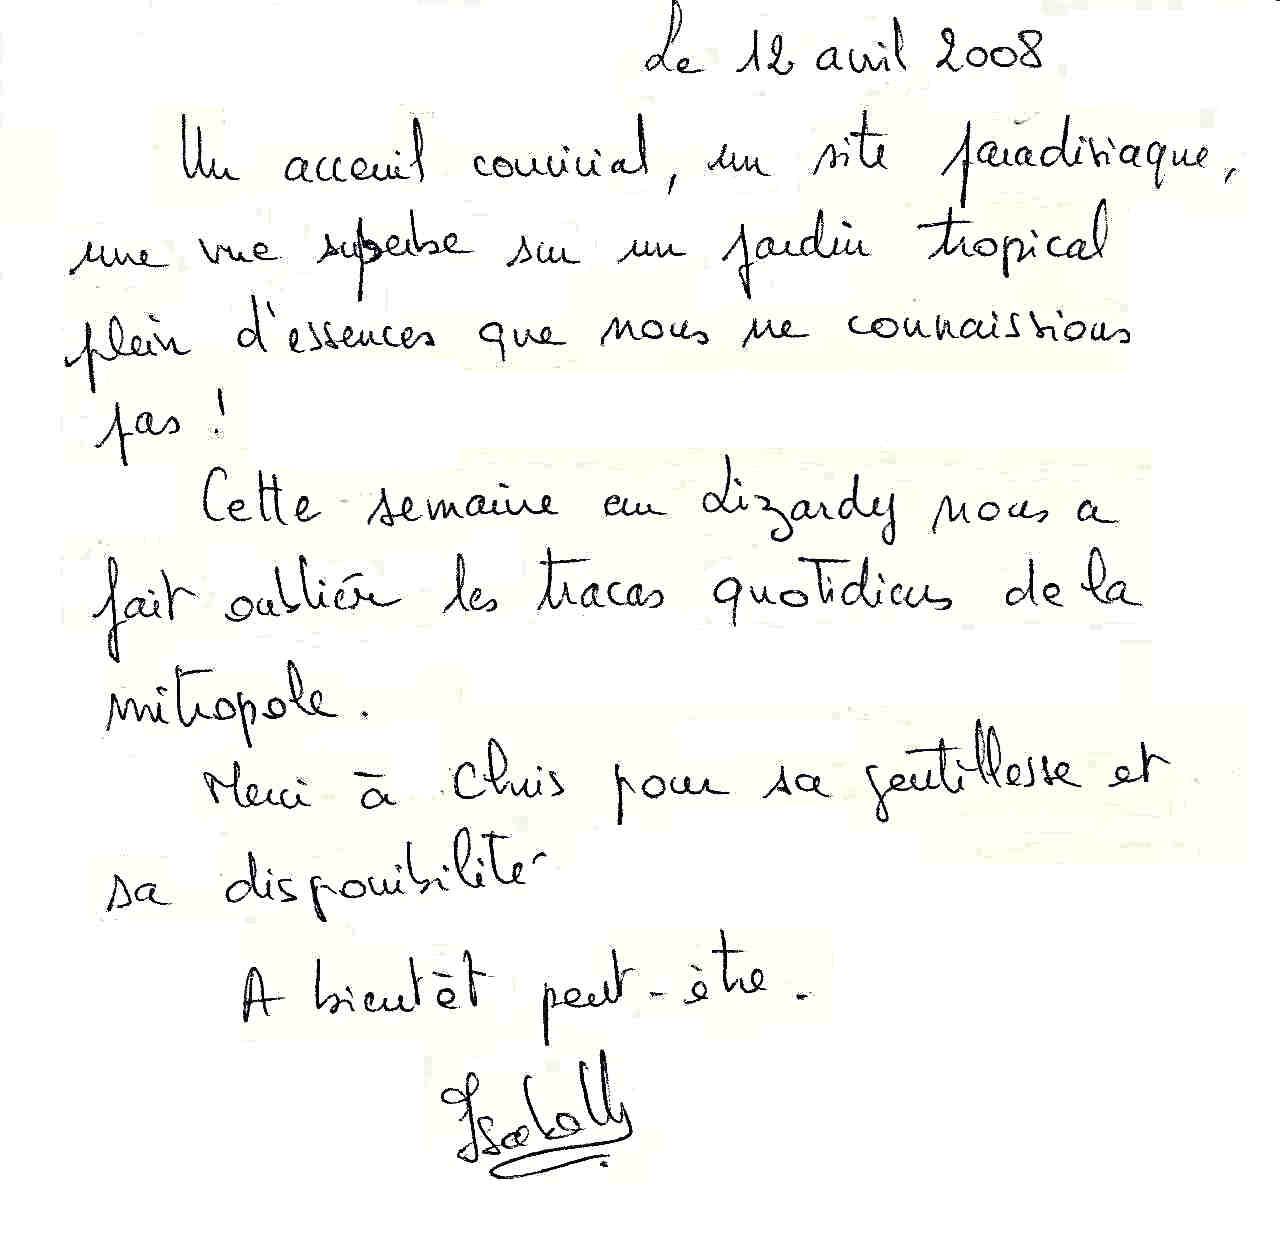 Le 12 avril 2008
Un acceuil convivial, un site paradisiaque,
une vue superbe sur un jardin tropical
plein d'essences que nous ne connaissions
pas !
Cette semaine au Lizardy nous a
fait oublier les tracas quotidiens de la
métropole.
Merci à Chris pour sa gentillesse et
sa disponibilité
A bientôt peut-être.